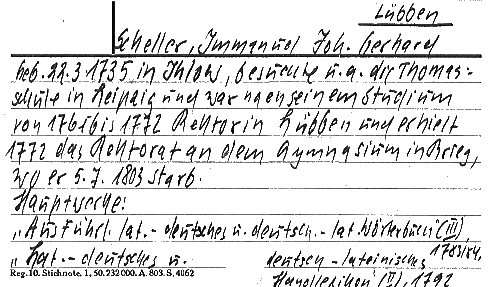 Lübben
Scheller, Immanuel Joh. Gerhard
geb. 22.3.1735 in Ihlow, besuchte u.a. die Thomas-
schule in Leipzig und war nach seinem Studium
von 1761 bis 1772 Rektor in Lübben und erhielt
1772 das Rektorat an dem Gymnasium in Brieg,
wo er 5.7.1803 starb.
Hauptwerke:
„Ausführl. lat.-deutsches u. deutsch.-lat. Wörterbuch" (III)
1783/84,
„Lat.-deutsches u. deutsch-lateinisches
Reg. 10. Stichnote, 1, 50. 232 000. A. 803. S. 4062
Handlexikon" (II), 1792